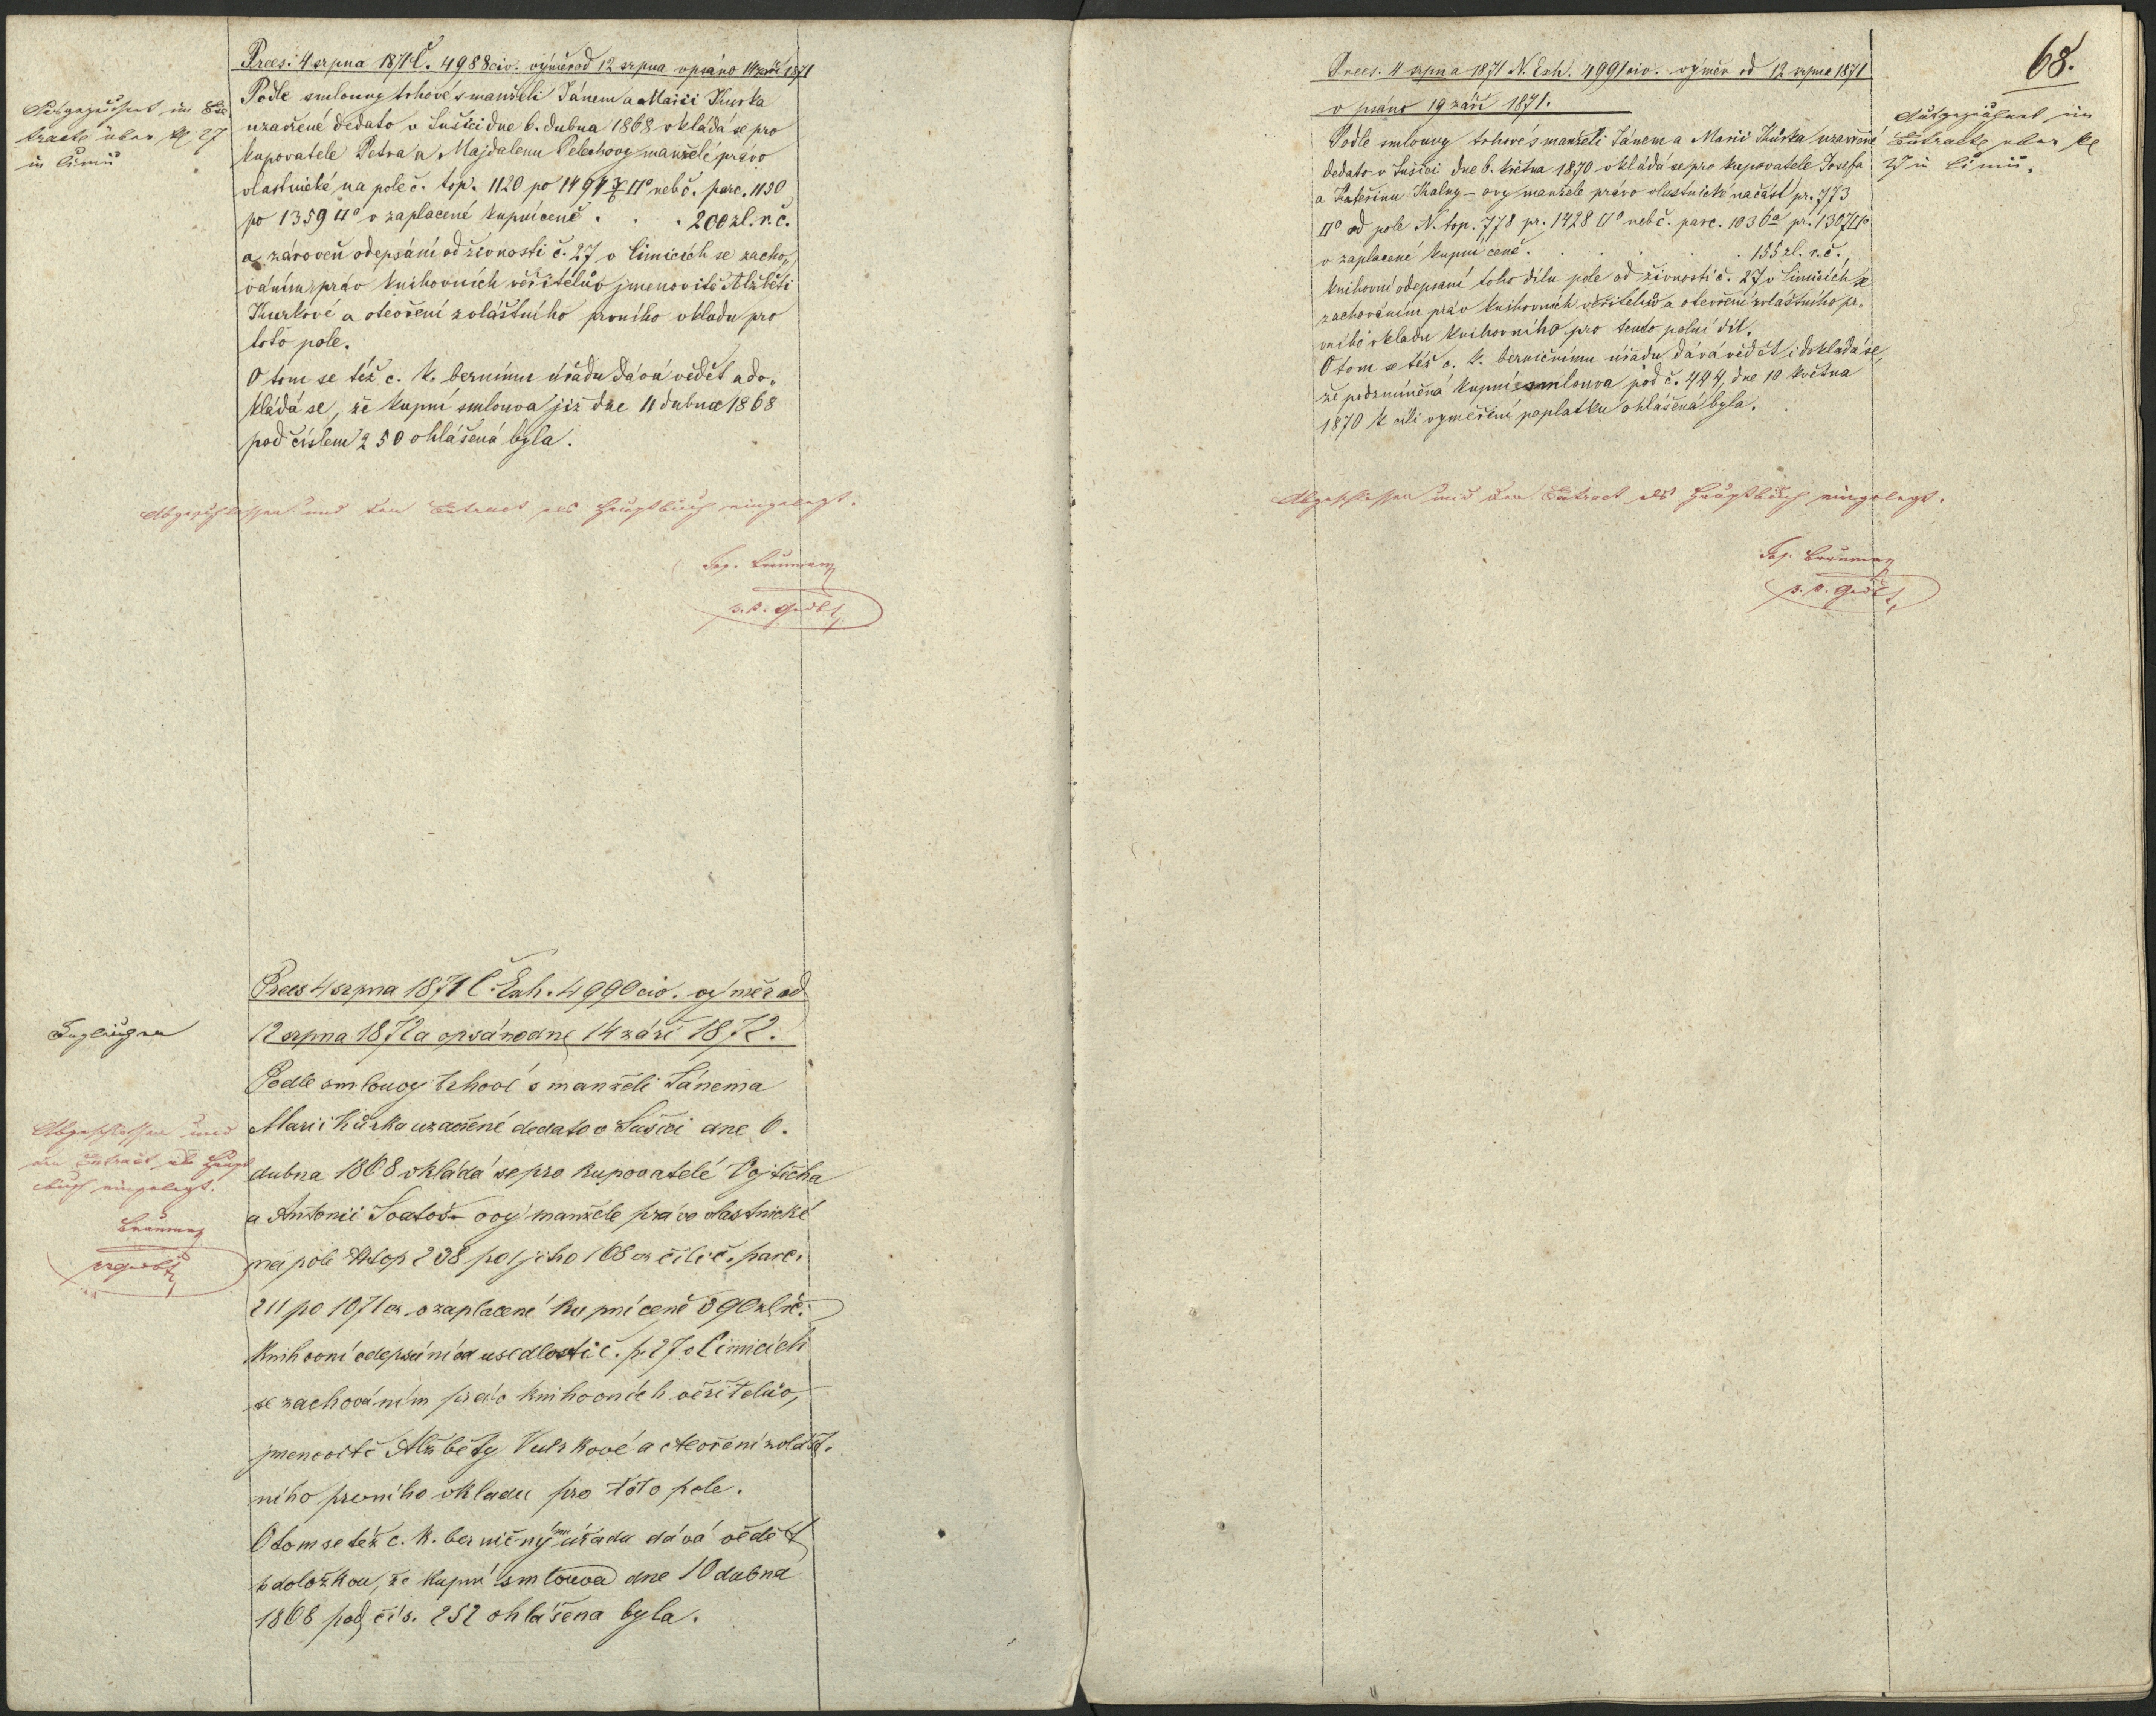 Præs: 4 srpna 1871 Č. 4988 civ. výměr od 12 srpna vpsáno 14 září 1871
Podle smlouvy trhové s manželi Jánem a Marií Kurka
uzavřené dedato v Sušici dne 6. dubna 1868 vkládá se pro
kupovatele Petra a Majdalenu manžele právo
vlastnické na pole č. top. 1120 po 1494 □° neb č. parc. 1130
po 1359 □° v zaplacené kupní ceně . . . 200 zl. r. č.
a zároveň odepsání od živnosti č. 27 v Čimicích se zacho-
váním práv knihovních věřitelův jmenovitě Alžběti
Kurkové a otevření zvláštního prvního vkladu pro
toto pole.
O tom se též c. k. bernímu úřadu dává vědět a do-
kládá se, že kupní smlouva již dne 11 dubna 1868
pod číslem 250 ohlášená byla.
Ausgezeichnet im Ex-
tracte über 27
in Čimic
Abgeschlossen und den Extract als Hauptbuch eingelegt.
Præs 4 srpna 1871 Č. Exh. 4990 civ. výměr od
12 srpna 1872 a vpsáno dne 14 září 1872.
Podle smlouvy trhové s manželi Jánem a
Marií Kůrka uzavřené dedato v Sušici dne 6.
dubna 1868 vkládá se pro kupovatelé Vojtěcha
a Antonii Svatoš- ovy manžele právo vlastnické
na pole N top 238 po 1 jitho 168 □ čili č. parc.
211 po 1071 □ v zaplacené kupní ceně 390 zl r. č.
knihovní odepsání od usedlosti č. p. 27 v Čimicích
se zachováním práv knihovních věřitelův,
jmenovitě Alžběty Kurkové a otevření zvlášt-
ního prvního vkladu pro toto pole.
O tom se též c. k. berničnýmu úřadu dává vědět
s doložkou, že kupní smlouva dne 10 dubna
1868 pod čís. 252 ohlášena byla.
Abgeschlossen und
den Extract als Haupt
buch eingelegt.
68.
Præs. 4 srpna 1871 N. Exh. 4991 civ. výměr od 12 srpna 1871
vpsáno 19 září 1871.
Podle smlouvy trhové s manželi Jánem a Marií Kůrka uzavřené
dedato v Sušici dne 6. května 1870 vkládá se pro kupovatele Josefa
a Kateřinu Kalny- ovy manžele právo vlastnické na část pr. 773
□° od pole N. top. 778 pr. 1428 □° neb č. parc. 1036a pr. 1307 □°
v zaplacené kupní ceně . . . . 155 zl. r. č.,
knihovní odepsaní toho dílu pole od živnosti č. 27 v Čimicích se
zachováním práv knihovních věřitelův a otevření zvláštního pr-
vního vkladu knihovního pro tento polní díl.
O tom se též c. k. berničnímu úřadu dává vědět i dokládá se,
že podzmíněná kupní smlouva pod č. 444, dne 10 května
1870 k cíli vyměření poplatku ohlášená byla.
Ausgezeichnet im
Extracte über
27 in Čimic.
Abgeschlossen und den Extract als Hauptbuch eingelegt.